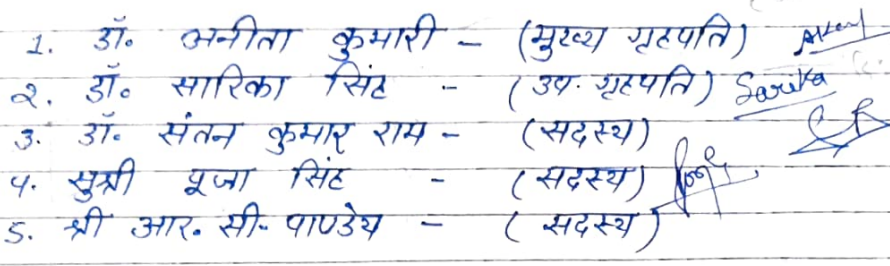 1. डॉ. अनीता कुमारी – (मुख्य गृहपति)
2. डॉ. सारिका सिंह - (उप. गृहपति) Sarika
3. डॉ. संतन कुमार राम - (सदस्य)
4. सुश्री पूजा सिंह - (सदस्य)
5. श्री आर. सी. पाण्डेय - (सदस्य)